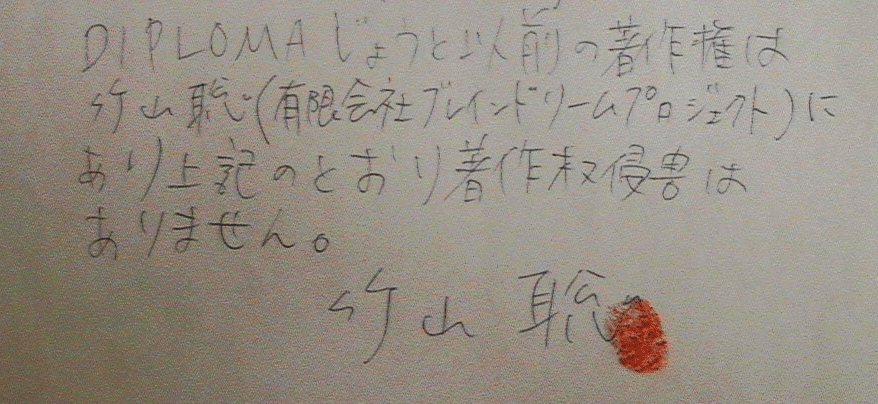 DIPLOMAじょうと以前の著作権は
竹山聡(有限会社ブレインドリームプロジェクト)に
あり上記のとおり著作权侵害は
ありません。
竹山聡